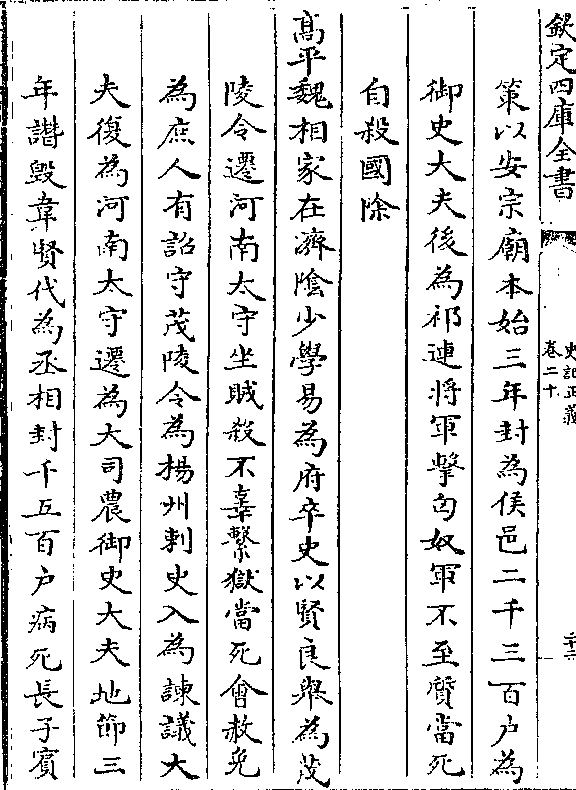 欽定四庫全書
史記正義
卷二十
二十三
策以安宗廟本始三年封為侯邑二千三百户為
御史大夫後為祁連將軍擊匈奴軍不至質當死
自殺國除
高平魏相家在濟陰少學易為府卒史以賢良舉為茂
陵令遷河南太守坐賊殺不辜繫獄當死會赦免
為庶人有詔守茂陵令為揚州刺史入為諫議大
夫復為河南太守遷為大司農御史大夫地節三
年譖毁韋賢代為丞相封千五百户病死長子賓